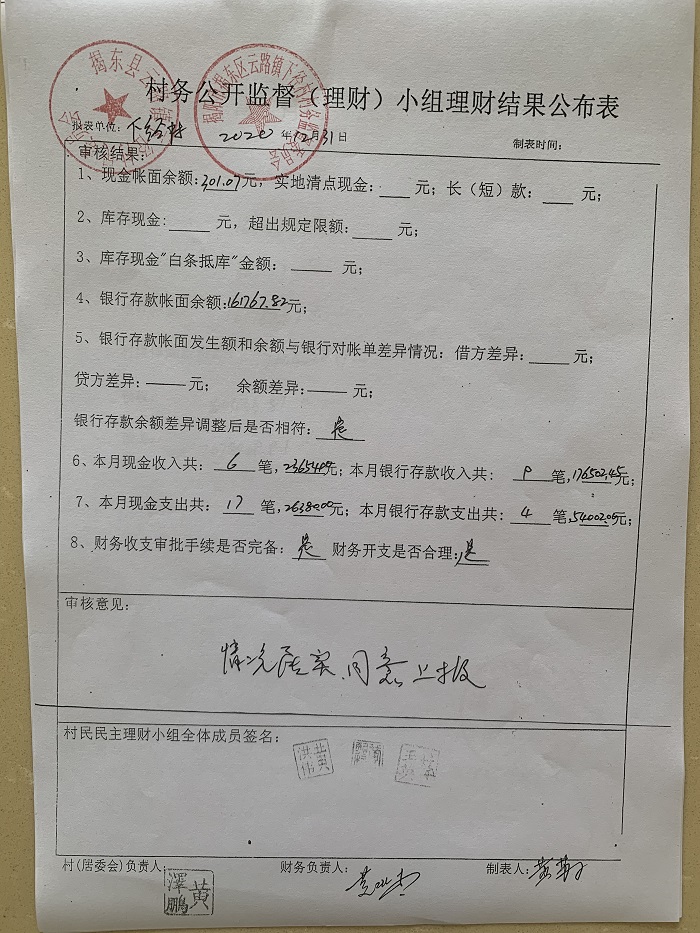 村务公开监督（理财）小组理财结果公布表
报表单位: 下径村 2020 年12月31日 制表时间:
审核结果:
1、现金帐面余额:301.07元，实地清点现金: 元；长（短）款: 元；
2、库存现金: 元，超出规定限额: 元；
3、库存现金"白条抵库"金额: 元；
4、银行存款帐面余额:161767.82元；
5、银行存款帐面发生额和余额与银行对帐单差异情况: 借方差异: 元；
贷方差异: 元； 余额差异: 元；
银行存款余额差异调整后是否相符: 是
6、本月现金收入共: 6 笔, 元；本月银行存款收入共: 笔,176502.45元；
7、本月现金支出共: 17 笔, 元；本月银行存款支出共: 4 笔,54002.05元；
8、财务收支审批手续是否完备: 是 财务开支是否合理:是
审核意见:
情况属实、同意上报
村民民主理财小组全体成员签名:
黄洪伟
村(居委会)负责人: 财务负责人: 制表人:
黄泽鹏